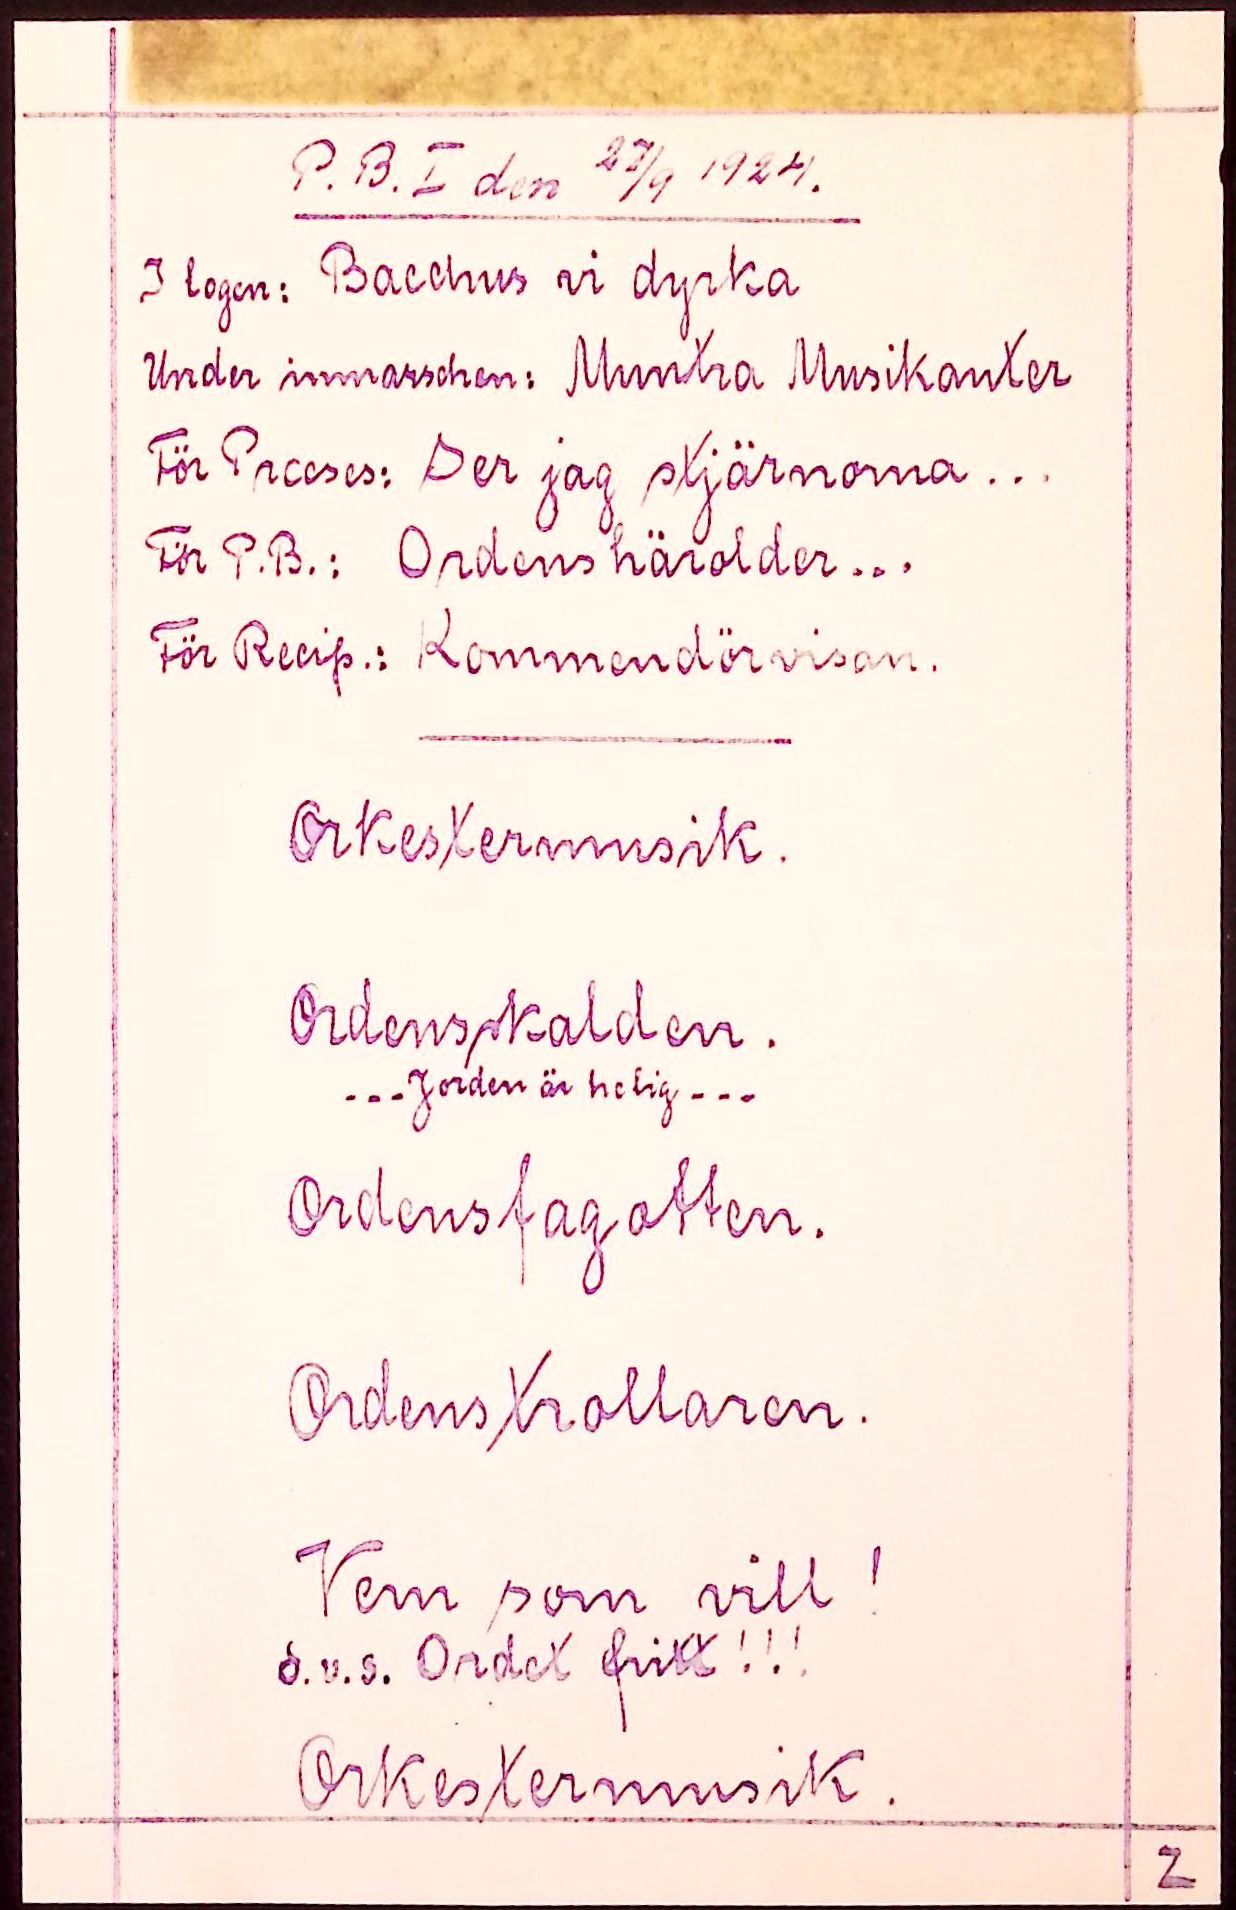 P.B. I den 27/9 1924.
I logen: Bacchus vi dyrka
Under inmarschen: Muntra Musikanter
För Preses: Ser jag stjärnorna...
För P.B.: Ordens härolder...
För Recip.: Kommendörvisan.
Orkestermusik.
Ordensskalden.
---Jorden är helig---
Ordensfagotten.
Ordenstrollaren.
Vem som vill!
d.v.s. Ordet fritt!!!
Orkestermusik.
2